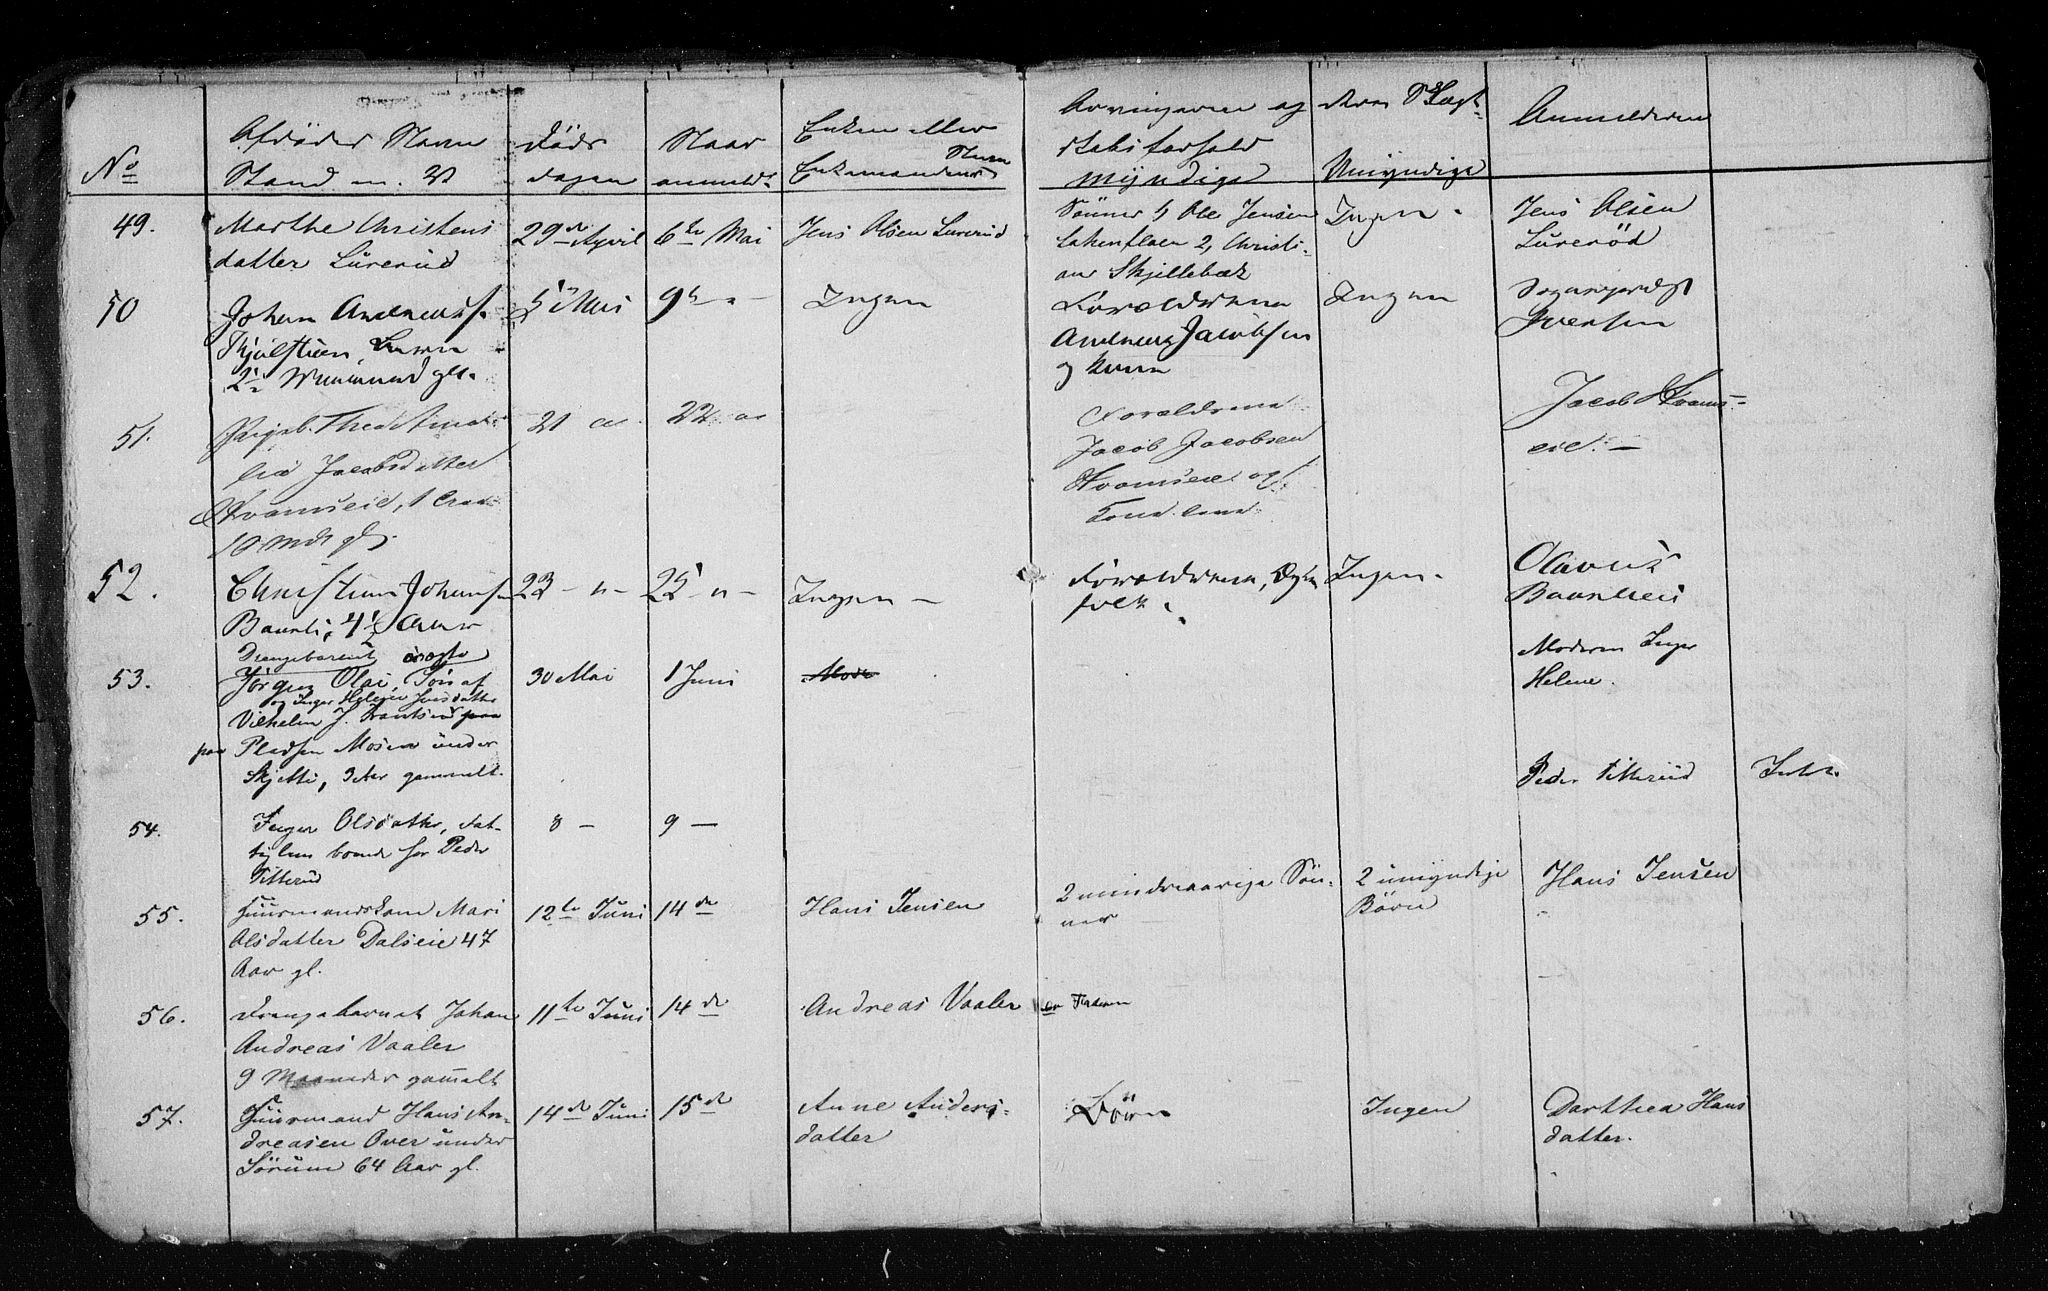 No
Afdødes Navn
Stand m. V
Døds
dagen
Naar
anmeldt
Enken eller
Enkemandens Navn
Arvingerne og deres Slægt-
skabsforhold
Myndige
Umyndige
Anmelderen
49.
Marthe Christens
datter Lurerud
29de April
6te Mai
Jens Olsen Lurerud
Sønner 1, Ole Jensen
2, Christi-
an Skjellebæk
Ingen
Jens Olsen
Lurerød
50
Johan Andreas
2½ gl.
5 Mai
9
Ingen
Forældrene
Andreas Jacobsen
og kone
Ingen
Iversen
51.
Thea Ama-
lia Jacobsdatter
Kvamseie, 1 Aar
10 Mdr gl.
21
22
Forældrene
Jacob Jacobsen
Kvamseie og
Jacob Kvams-
eie.
52.
Christian Johans
4½ Aar
23 - " -
25 - " -
Ingen -
Forældrene,
folk.
Ingen.
Olavus
53.
Drengebarnet uægte
Jørgen Olai Søn af
og Inger Helene Jensdatter
Vilhelm J. Frantsen
paa Pladsen Mosen under
Skjetti, 3 Aar gammelt.
30 Mai
1 Juni
Moderen Inger
Helene.
54.
Inger Olsdatter, fat-
tiglem boende hos Peder
Titterud
8 -
9 -
Peder Titterud
Intet.
55.
Huusmandskone Mari
Olsdatter Dalseie 47
Aar gl.
12te Juni
14de
Hans Jensen
2 mindreaarige Søn-
ner
2 umyndige
Børn
Hans Jensen
56.
Drengebarnet Johan
Andreas Vaaler
9 Maaneder gamelt
11te Juni
14de
Andreas Vaaler
er Faderen
57.
Huusmand Hans An-
dreasen Over under
Sørum 64 Aar gl.
14de Juni
15de
Anne Anders-
datter
Børn
Ingen
Dorthea Hans
datter.